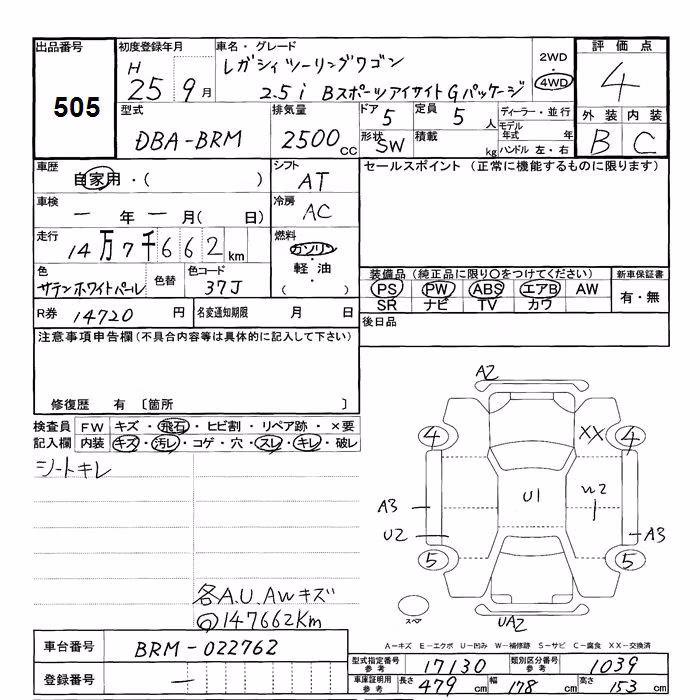 出品番号
505
初度登録年月
H 25 9月
車名・グレード
レガシィツーリングワゴン
2.5i Bスポーツアイサイト Gパッケージ
2WD
・
4WD
評価点
4
外装 内装
B C
型式
DBA-BRM
排気量
2500cc
ドア 5
形状 SW
定員 5人
積載 kg
ディーラー・並行
モデル年式 年
ハンドル 左・右
車歴
自家用・( )
シフト
AT
車検
一年一月( 日)
冷房
AC
走行
14万7千662km
燃料
ガソリン
・
軽油
( )
色
サテンホワイトパール
色替
色コード
37J
R券 14720 円
名変通知期限 月 日
セールスポイント (正常に機能するものに限ります)
装備品 (純正品に限り○をつけてください)
PS PW ABS エアB AW
SR ナビ TV カワ
新車保証書
有・無
後日品
注意事項申告欄(不具合内容等は具体的に記入して下さい)
修復歴 有 〔箇所 〕
検査員 FW キズ・飛石・ヒビ割・リペア跡・×要
記入欄 内装 キズ・汚レ・コゲ・穴・スレ・キレ・破レ
シートキレ
各A.U.AWキズ
147662Km
A2
4
XX
4
U1
A3
U2
A3
5
5
UA2
スペア
A-キズ E-エクボ U-凹み W-補修跡 S-サビ C-腐食 XX-交換済
車台番号 BRM-022762
登録番号 一
型式指定番号 参考 17130
類別区分番号 参考 1039
車庫証明用 参考 長さ 479 cm 幅 178 cm 高さ 153 cm